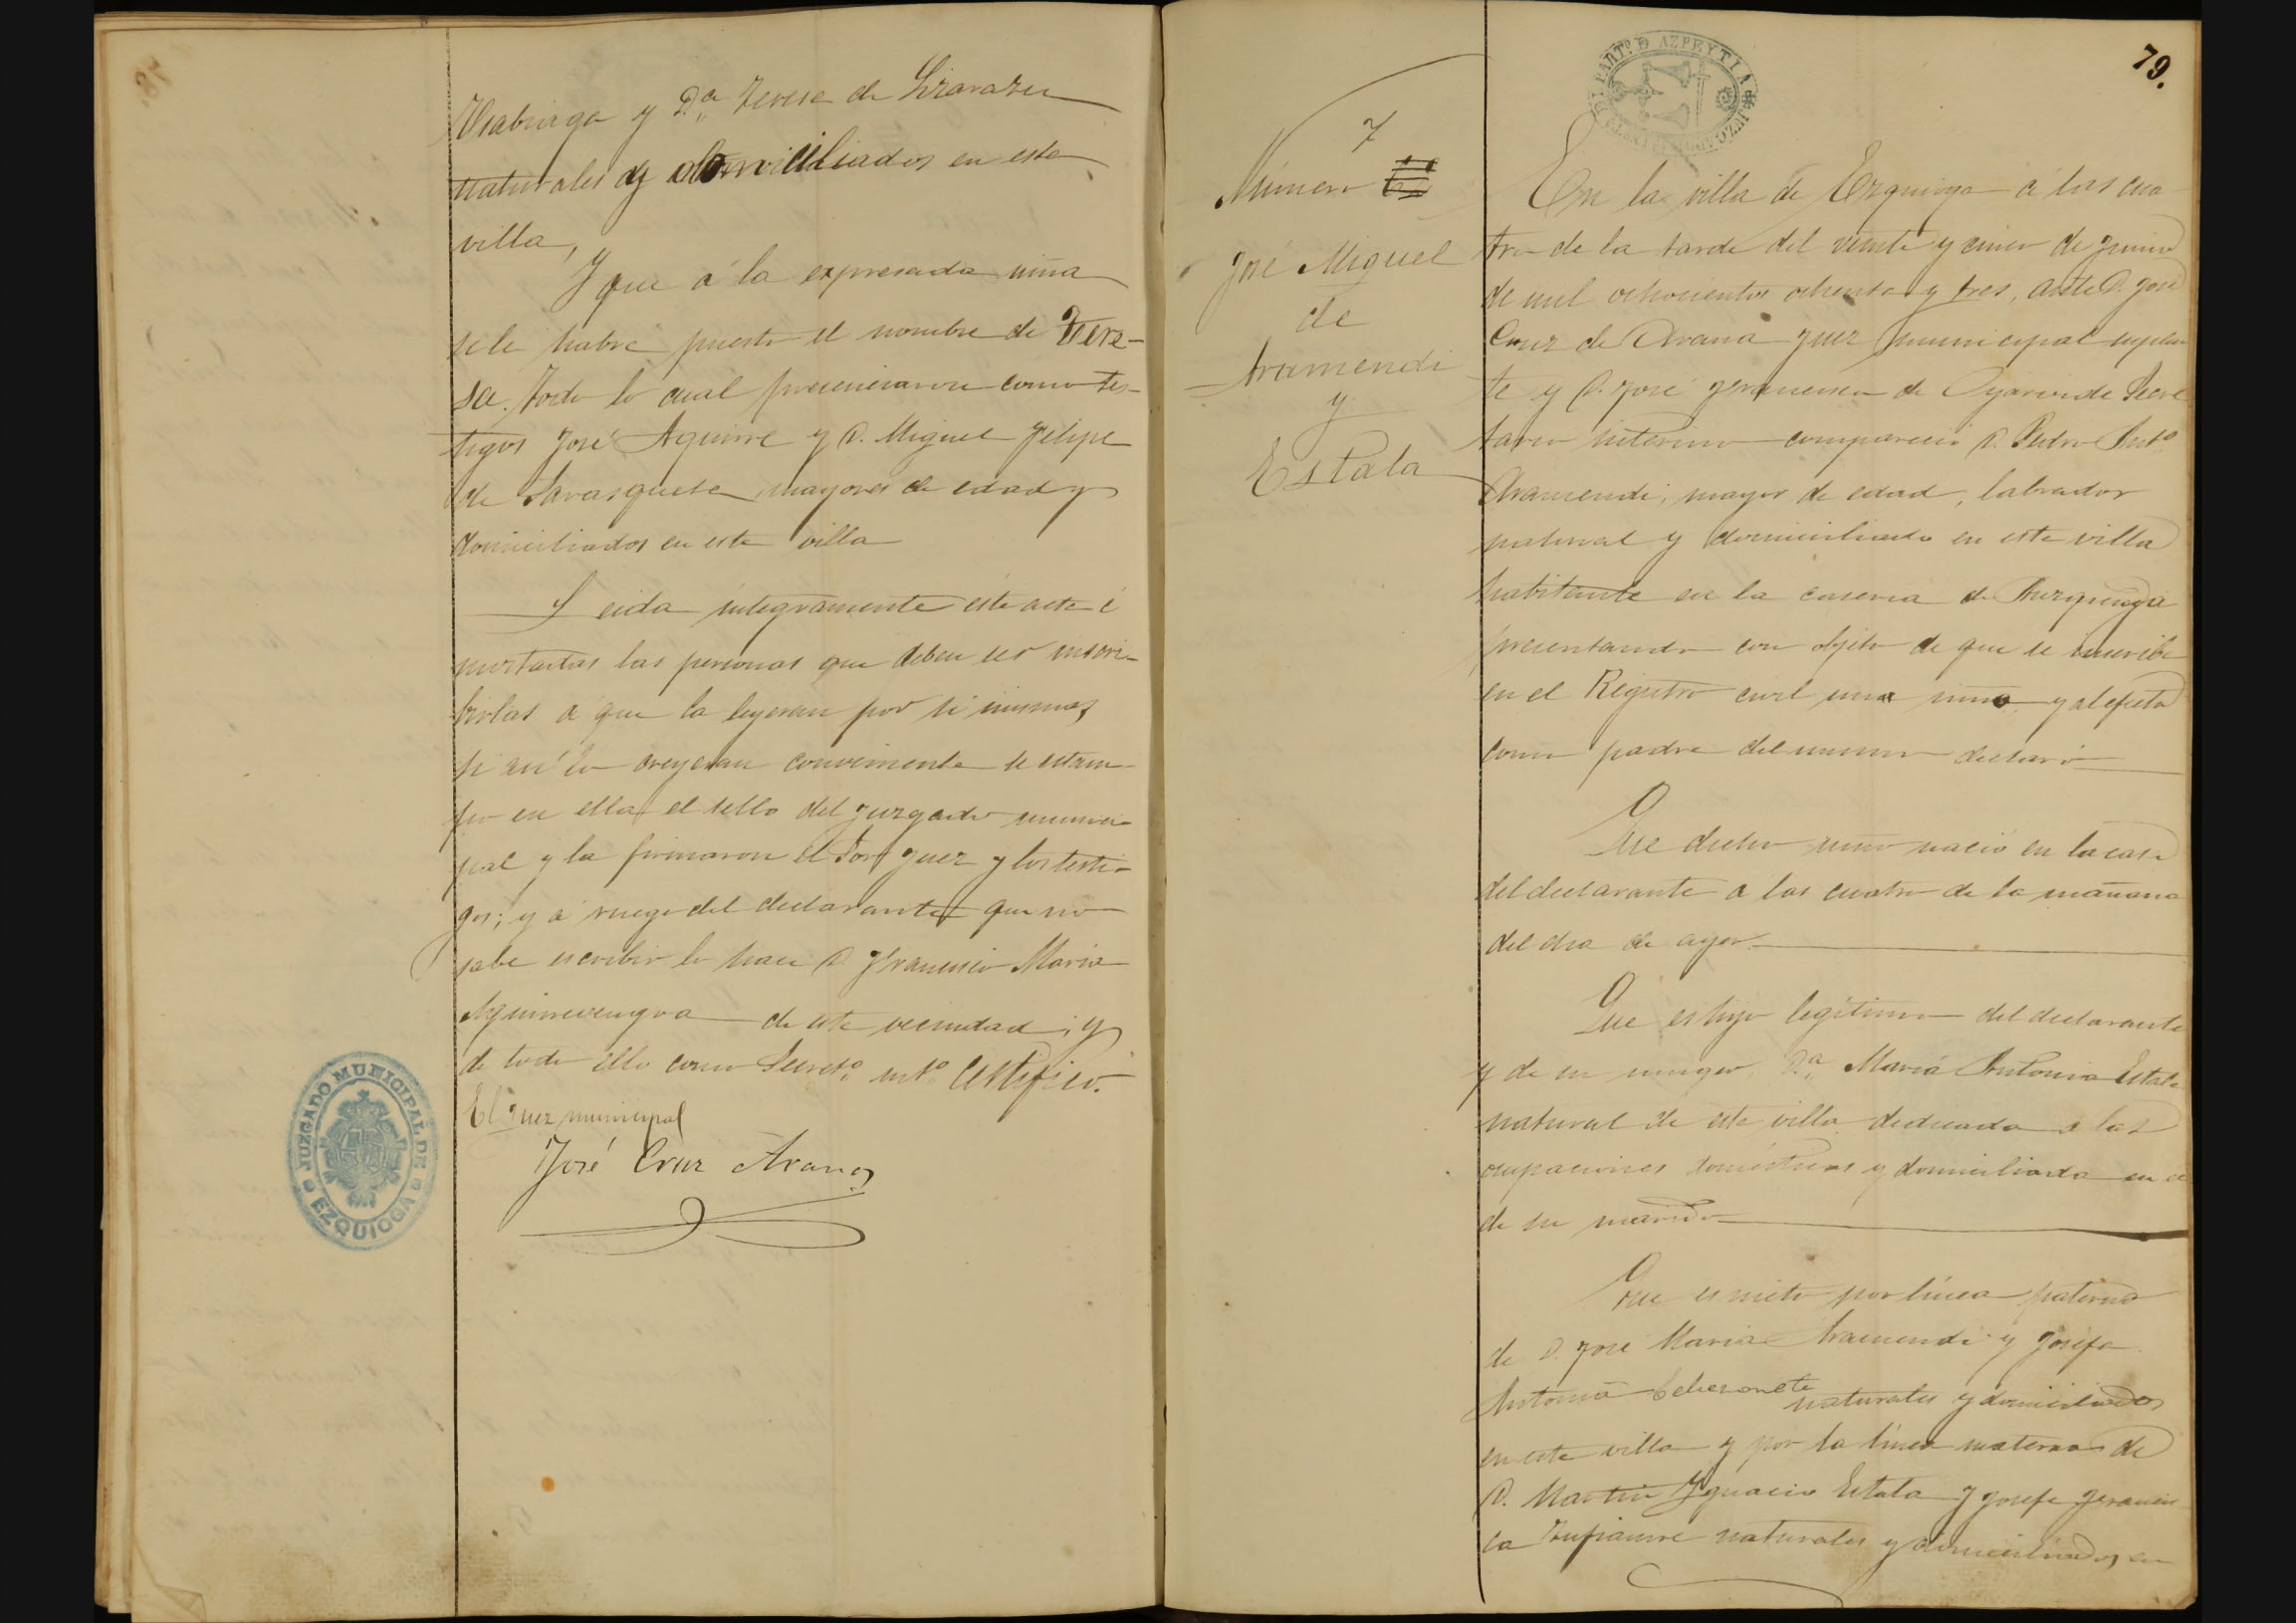 y D.ª Teresa de Lizarazu
naturales y domiciliados en esta
villa,
Y que á la expresada niña
se le habrá puesto el nombre de Tere-
sa. Todo lo cual presenciaron como tes-
tigos José Aguirre y D. Miguel Felipe
de mayores de edad y
domiciliados en esta villa
Leida integramente esta acta é
las personas que deben
á que la leyeran por si mismas
si así lo creyeran conveniente se estam-
po en ella el sello del Juzgado munici-
pal y la firmaron el Sor Juez y los testi-
gos; y á ruego del declarante que no
sabe escribir lo hace D. Francisco Maria
de esta vecindad; y
de todo ello como Secret.º int.º Certifico.
El Juez municipal
José Cruz Arana
JUZGADO MUNICIPAL DE EZQUIOGA
79.
PART.º D AZPEYTIA
7
Número
José Miguel
de
Aramendi
y
Estala
En la villa de Ezquioga á las cua-
tro de la tarde del veinte y cinco de Junio
de mil ochocientos ochenta y tres, ante D. José
Cruz de Arana Juez municipal suplen
te y D. José Francisco de Oyarvide Secre
tario interino compareció D. Pedro Ant.º
Aramendi, mayor de edad, labrador
natural y domiciliado en esta villa
habitante en la caseria de
presentando con objeto de que se inscriba
en el Registro civil un niño y al efecto
como padre del mismo declaró
Que dicho niño nació en la casa
del declarante a las cuatro de la mañana
del dia de ayer.
Que es hijo legítimo del declarante
y de su muger, D.ª María Antonia Estala
natural de esta villa dedicada a las
ocupaciones domésticas y domiciliada en el
de su marido
Que es nieto por línea paterna
de D. José Maria Aramendi y Josefa
Antonia naturales y domiciliados
en esta villa y por la línea materna de
D. Martin Ygnacio Estala y Josefa Francis-
ca naturales y domiciliados en